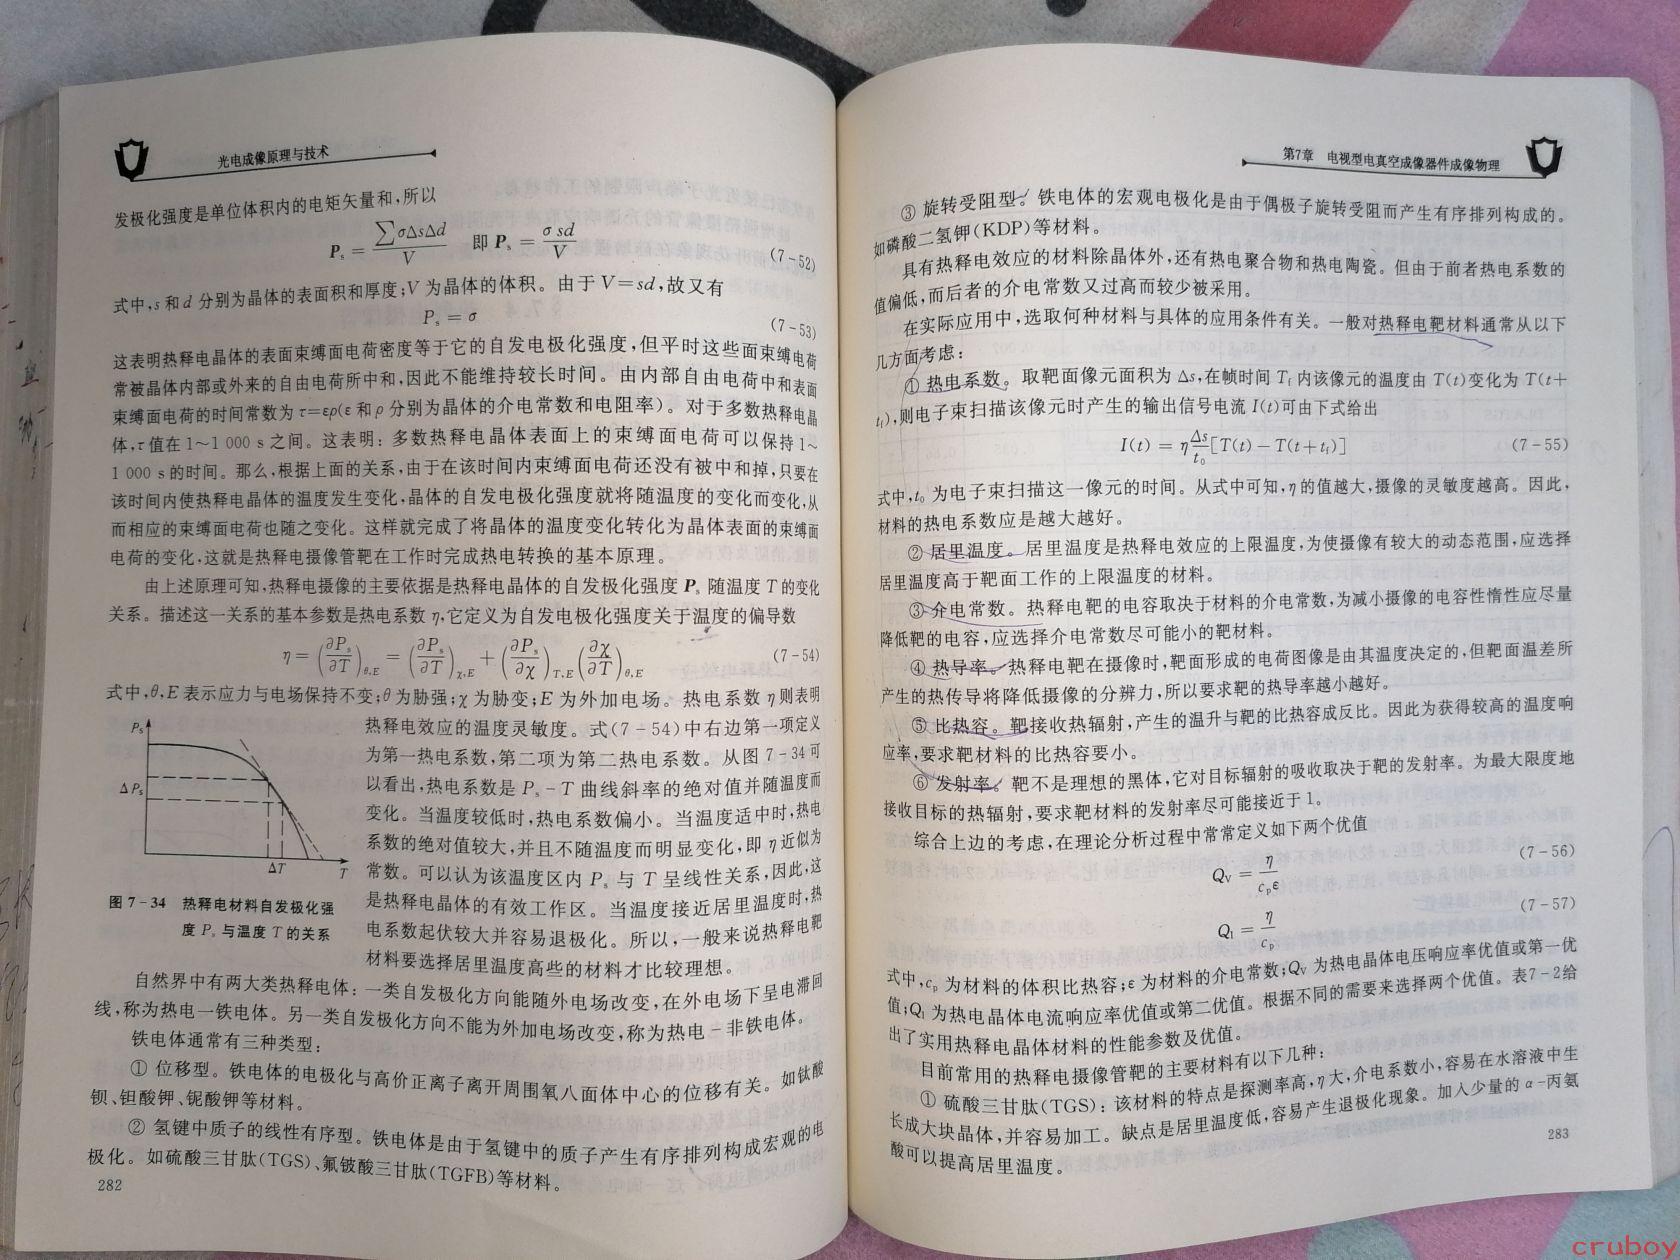 光电成像原理与技术
发极化强度是单位体积内的电矩矢量和,所以
Pₛ = ∑σΔsΔd / V 即 Pₛ = σsd / V (7-52)
式中,s 和 d 分别为晶体的表面积和厚度;V 为晶体的体积。由于 V=sd,故又有
Pₛ = σ (7-53)
这表明热释电晶体的表面束缚面电荷密度等于它的自发电极化强度,但平时这些面束缚电荷
常被晶体内部或外来的自由电荷所中和,因此不能维持较长时间。由内部自由电荷中和表面
束缚面电荷的时间常数为 τ=ερ(ε 和 ρ 分别为晶体的介电常数和电阻率)。对于多数热释电晶
体,τ 值在 1~1 000 s 之间。这表明:多数热释电晶体表面上的束缚面电荷可以保持 1~
1 000 s 的时间。那么,根据上面的关系,由于在该时间内束缚面电荷还没有被中和掉,只要在
该时间内使热释电晶体的温度发生变化,晶体的自发电极化强度就将随温度的变化而变化,从
而相应的束缚面电荷也随之变化。这样就完成了将晶体的温度变化转化为晶体表面的束缚面
电荷的变化,这就是热释电摄像管靶在工作时完成热电转换的基本原理。
由上述原理可知,热释电摄像的主要依据是热释电晶体的自发极化强度 Pₛ 随温度 T 的变化
关系。描述这一关系的基本参数是热电系数 η,它定义为自发电极化强度关于温度的偏导数
η = (∂Pₛ/∂T)θ,E = (∂Pₛ/∂T)χ,E + (∂Pₛ/∂χ)T,E (∂χ/∂T)θ,E (7-54)
式中,θ,E 表示应力与电场保持不变;θ 为胁强;χ 为胁变;E 为外加电场。热电系数 η 则表明
热释电效应的温度灵敏度。式(7-54)中右边第一项定义
为第一热电系数,第二项为第二热电系数。从图 7-34 可
以看出,热电系数是 Pₛ-T 曲线斜率的绝对值并随温度而
变化。当温度较低时,热电系数偏小。当温度适中时,热电
系数的绝对值较大,并且不随温度而明显变化,即 η 近似为
常数。可以认为该温度区内 Pₛ 与 T 呈线性关系,因此,这
是热释电晶体的有效工作区。当温度接近居里温度时,热
电系数起伏较大并容易退极化。所以,一般来说热释电靶
材料要选择居里温度高些的材料才比较理想。
Pₛ
ΔPₛ
ΔT
T
图 7-34 热释电材料自发极化强
度 Pₛ 与温度 T 的关系
自然界中有两大类热释电体:一类自发极化方向能随外电场改变,在外电场下呈电滞回
线,称为热电—铁电体。另一类自发极化方向不能为外加电场改变,称为热电-非铁电体。
铁电体通常有三种类型:
① 位移型。铁电体的电极化与高价正离子离开周围氧八面体中心的位移有关。如钛酸
钡、钽酸钾、铌酸钾等材料。
② 氢键中质子的线性有序型。铁电体是由于氢键中的质子产生有序排列构成宏观的电
极化。如硫酸三甘肽(TGS)、氟铍酸三甘肽(TGFB)等材料。
282
第7章 电视型电真空成像器件成像物理
③ 旋转受阻型。铁电体的宏观电极化是由于偶极子旋转受阻而产生有序排列构成的。
如磷酸二氢钾(KDP)等材料。
具有热释电效应的材料除晶体外,还有热电聚合物和热电陶瓷。但由于前者热电系数的
值偏低,而后者的介电常数又过高而较少被采用。
在实际应用中,选取何种材料与具体的应用条件有关。一般对热释电靶材料通常从以下
几方面考虑:
① 热电系数。取靶面像元面积为 Δs,在帧时间 Tf 内该像元的温度由 T(t)变化为 T(t+
tf),则电子束扫描该像元时产生的输出信号电流 I(t)可由下式给出
I(t) = η Δs/t₀ [T(t) − T(t+tf)] (7-55)
式中,t₀ 为电子束扫描这一像元的时间。从式中可知,η 的值越大,摄像的灵敏度越高。因此,
材料的热电系数应是越大越好。
② 居里温度。居里温度是热释电效应的上限温度,为使摄像有较大的动态范围,应选择
居里温度高于靶面工作的上限温度的材料。
③ 介电常数。热释电靶的电容取决于材料的介电常数,为减小摄像的电容性惰性应尽量
降低靶的电容,应选择介电常数尽可能小的靶材料。
④ 热导率。热释电靶在摄像时,靶面形成的电荷图像是由其温度决定的,但靶面温差所
产生的热传导将降低摄像的分辨力,所以要求靶的热导率越小越好。
⑤ 比热容。靶接收热辐射,产生的温升与靶的比热容成反比。因此为获得较高的温度响
应率,要求靶材料的比热容要小。
⑥ 发射率。靶不是理想的黑体,它对目标辐射的吸收取决于靶的发射率。为最大限度地
接收目标的热辐射,要求靶材料的发射率尽可能接近于 1。
综合上边的考虑,在理论分析过程中常常定义如下两个优值
Qᵥ = η / cₚε (7-56)
Qᵢ = η / cₚ (7-57)
式中,cₚ 为材料的体积比热容;ε 为材料的介电常数;Qᵥ 为热电晶体电压响应率优值或第一优
值;Qᵢ 为热电晶体电流响应率优值或第二优值。根据不同的需要来选择两个优值。表7-2给
出了实用热释电晶体材料的性能参数及优值。
目前常用的热释电摄像管靶的主要材料有以下几种:
① 硫酸三甘肽(TGS):该材料的特点是探测率高,η 大,介电系数小,容易在水溶液中生
长成大块晶体,并容易加工。缺点是居里温度低,容易产生退极化现象。加入少量的 α-丙氨
酸可以提高居里温度。
283
cruboy